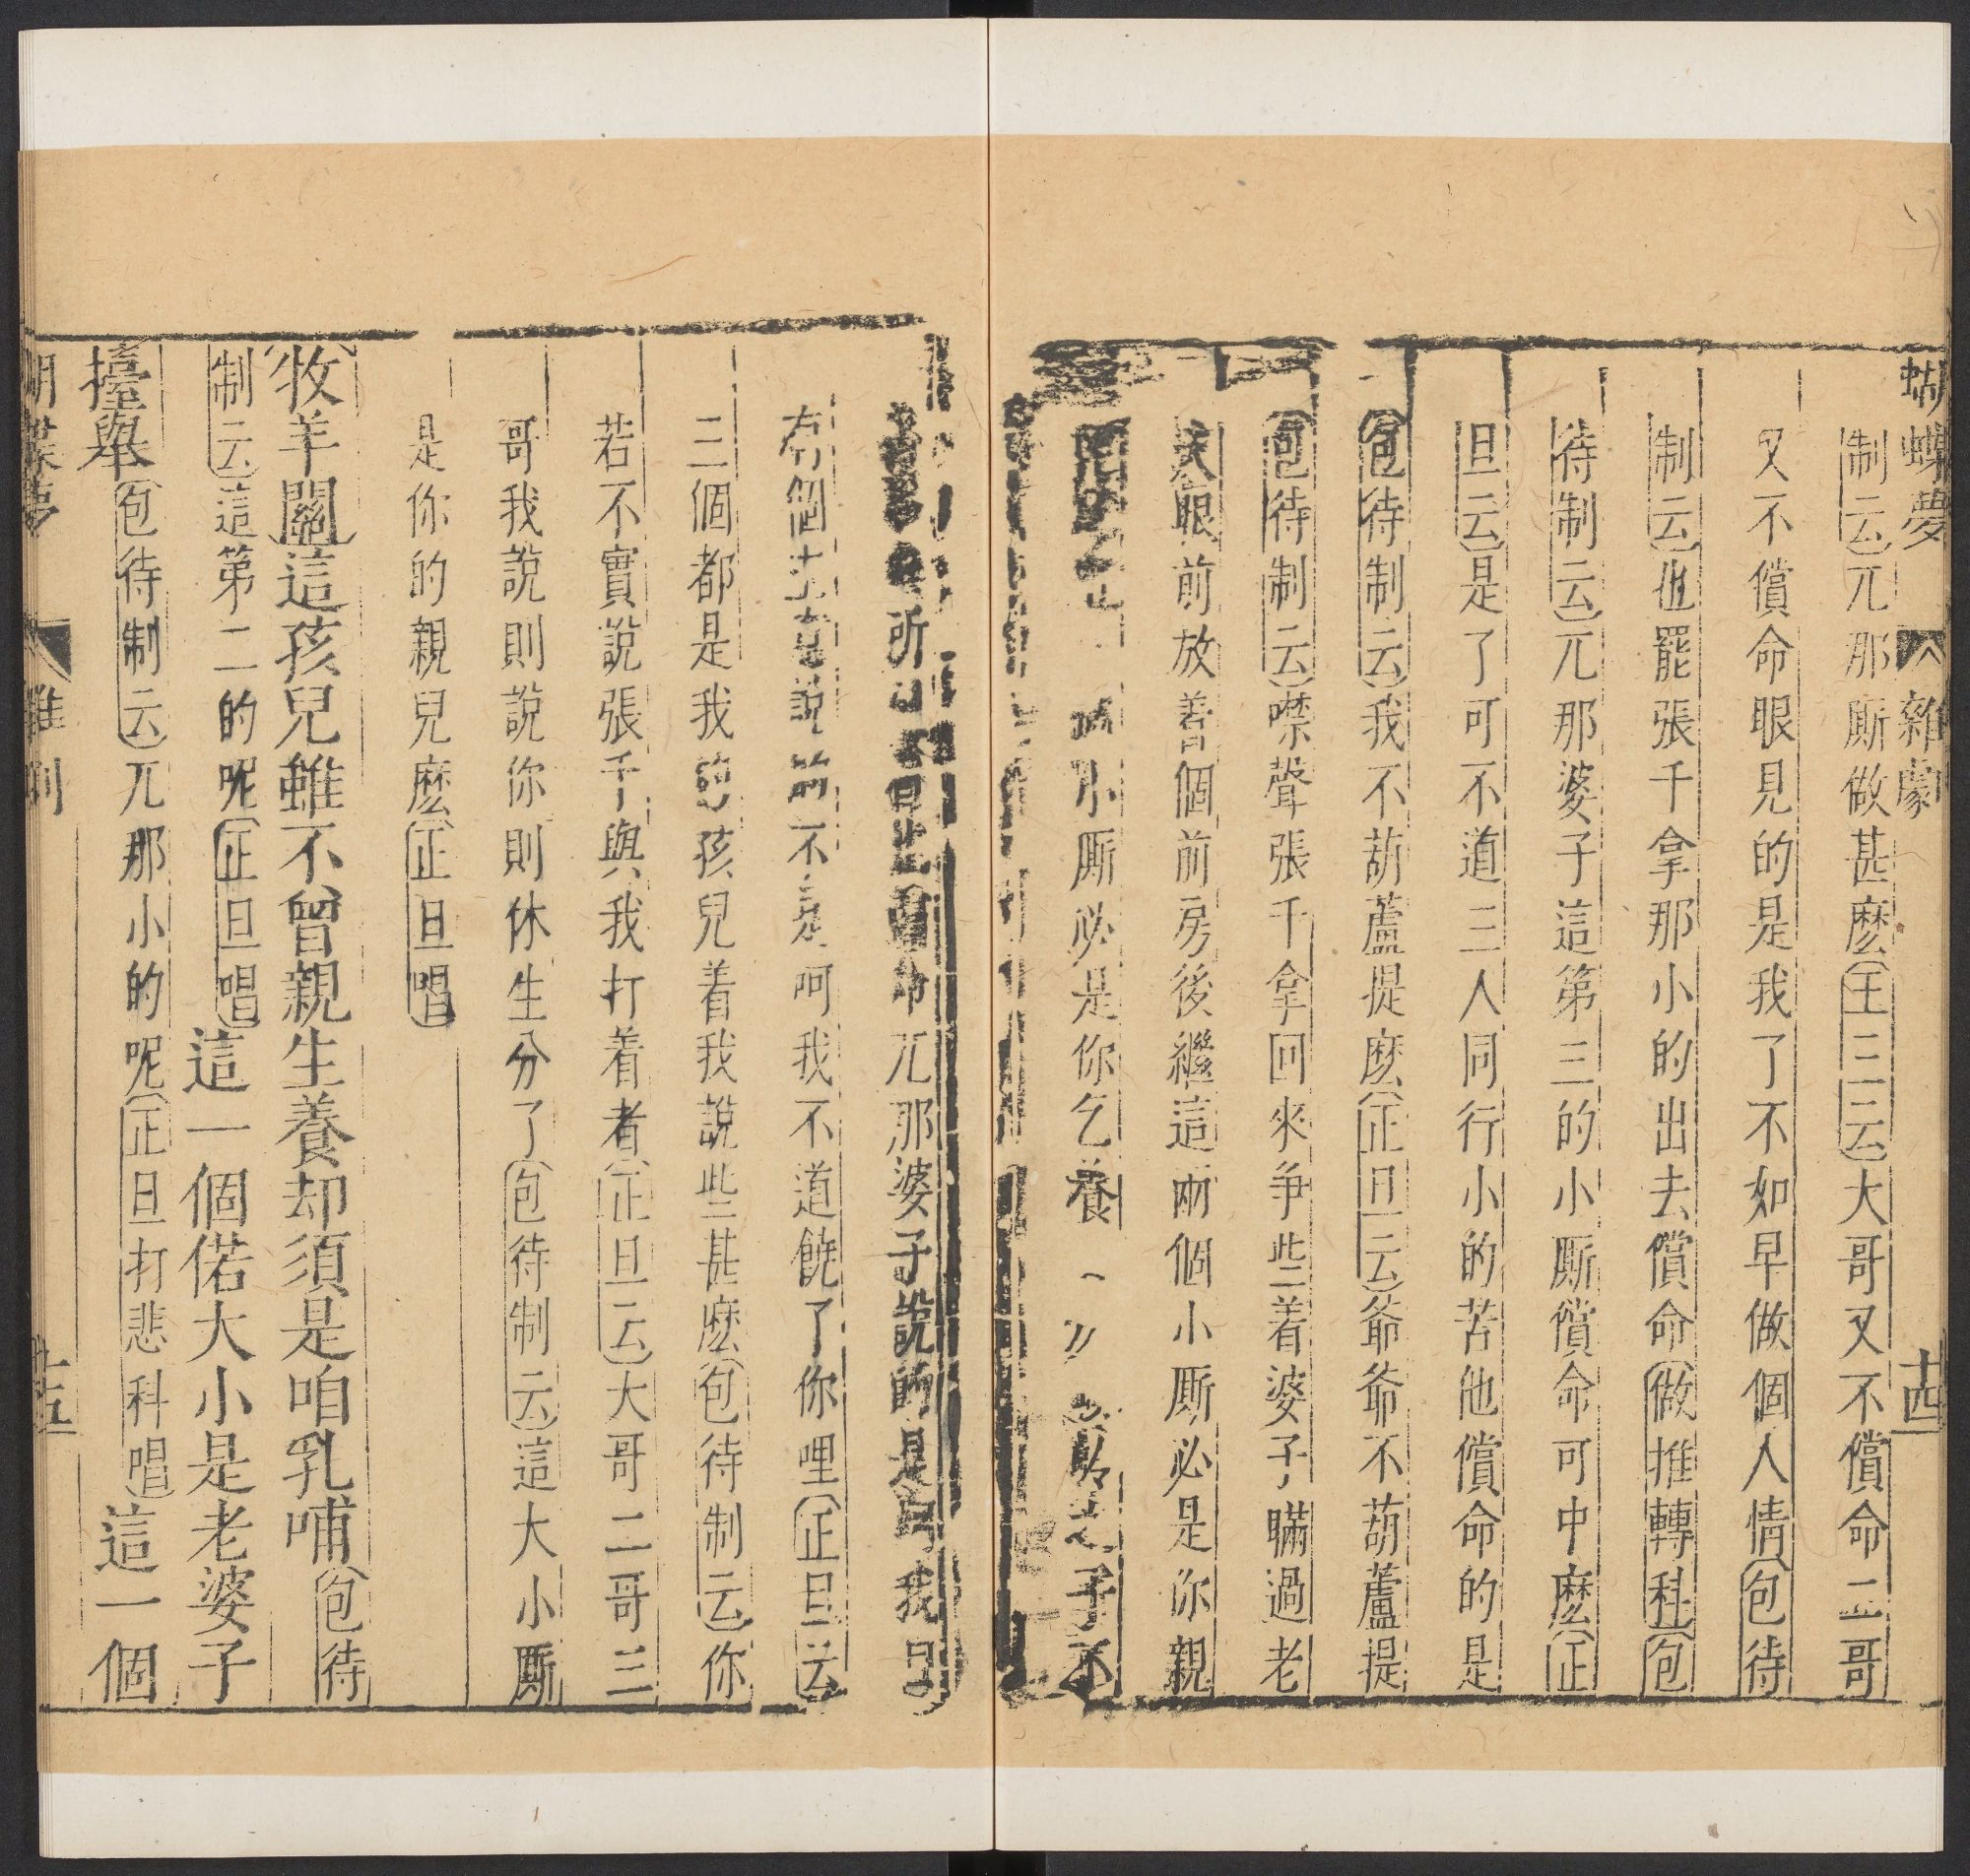 蝴蝶夢 雜劇 十四
制云兀那厮做甚麽王三云大哥又不償命二哥
又不償命眼見的是我了不如早做個人情包待
制云也罷張千拿那小的出去償命做推轉科包
待制云兀那婆子這第三的小厮償命可中麽正
旦云是了可不道三人同行小的苦他償命的是
包待制云我不葫蘆提麽正旦云爺爺不葫蘆提
包待制云噤聲張千拿回來争些着婆子瞞過老
夫眼前放着個前房後繼這兩個小厮必是你親
小厮必是你乞養子不
所兀那婆子說的是呵我
說不是呵我不道饒了你哩正旦云
三個都是我的孩兒着我說些甚麽包待制云你
若不實說張千與我打着者正旦云大哥二哥三
哥我說則說你則休生分了包待制云這大小厮
是你的親兒麽正旦唱
牧羊關這孩兒雖不曾親生養却須是咱乳哺包待
制云這第二的呢正旦唱這一個偌大小是老婆子
擡舉包待制云兀那小的呢正旦打悲科唱這一個
蝶夢 十五